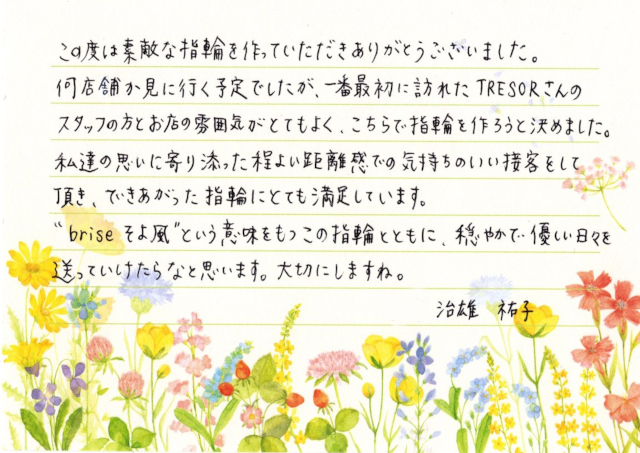 この度は素敵な指輪を作っていただきありがとうございました。
何店舗か見に行く予定でしたが、一番最初に訪れたTRESORさんの
スタッフの方とお店の雰囲気がとてもよく、こちらで指輪を作ろうと決めました。
私達の思いに寄り添った程よい距離感での気持ちのいい接客をして
頂き、できあがった指輪にとても満足しています。
“brise そよ風”という意味をもつこの指輪とともに、穏やかで優しい日々を
送っていけたらなと思います。大切にしますね。
治雄 祐子